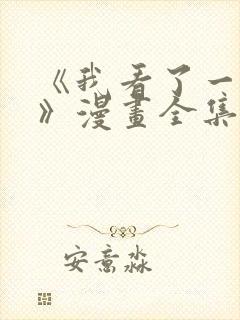 《我看了一
》漫畫全集
安意淼